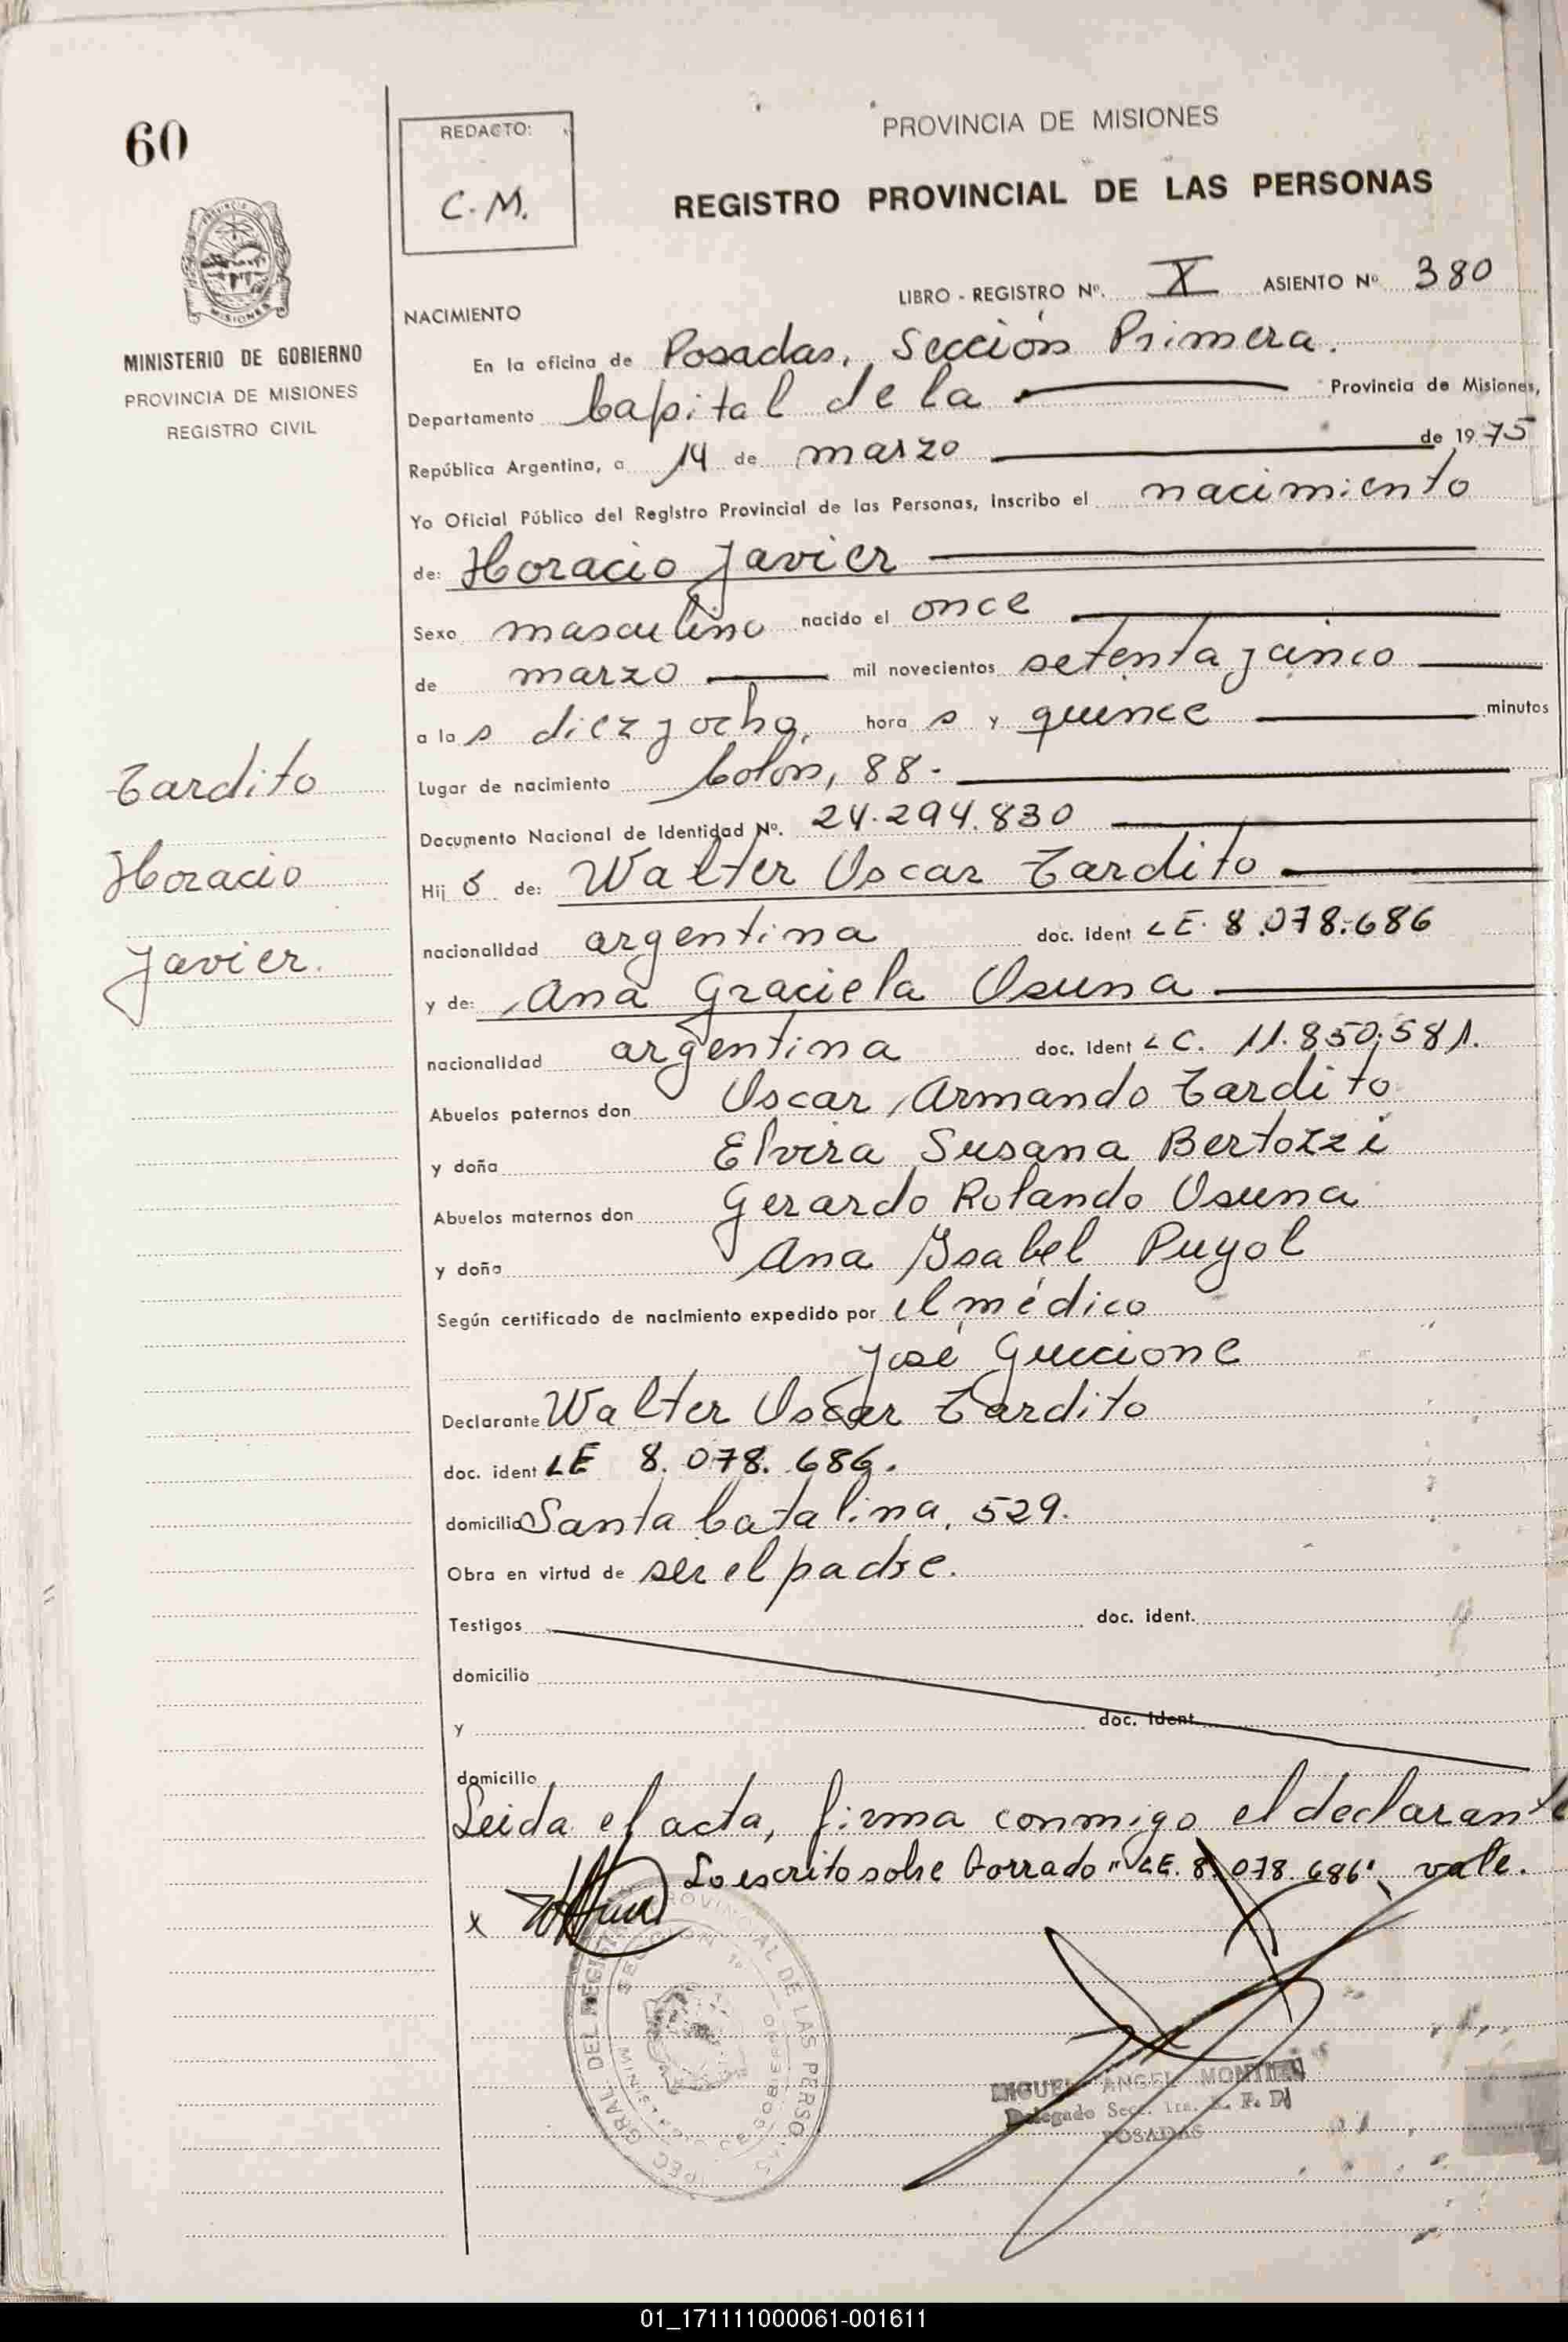 60
REDACTO:
C.M.
PROVINCIA DE MISIONES
REGISTRO PROVINCIAL DE LAS PERSONAS
MISIONES
MINISTERIO DE GOBIERNO
PROVINCIA DE MISIONES
REGISTRO CIVIL
LIBRO - REGISTRO Nº. X ASIENTO Nº 380
NACIMIENTO
En la oficina de Posadas, Sección Primera.
Departamento Capital de la Provincia de Misiones,
República Argentina, a 14 de marzo de 1975
Yo Oficial Público del Registro Provincial de las Personas, inscribo el nacimiento
de: Horacio Javier
Sexo masculino nacido el once
de marzo mil novecientos setenta y cinco
a las diez y ocho, hora s y quince minutos
Lugar de nacimiento Colon, 88.-
Documento Nacional de Identidad Nº. 24.294.830
Hij o de: Walter Oscar Tardito
nacionalidad argentina doc. ident LE. 8.078.686
y de: Ana Graciela Osuna
nacionalidad argentina doc. ident LC. 11.850.581.
Abuelos paternos don Oscar Armando Tardito
y doña Elvira Susana Bertozzi
Abuelos maternos don Gerardo Rolando Osuna
y doña Ana Ysabel Puyol
Según certificado de nacimiento expedido por el médico
José Guccione
Declarante Walter Oscar Tardito
doc. ident LE 8.078.686.
domicilio Santa Catalina, 529.
Obra en virtud de ser el padre.
Testigos doc. ident.
domicilio
y doc. ident
domicilio
Leida el acta, firma conmigo el declarante
Lo escrito sobre borrado "LE. 8.078.686", vale.
x
Tardito
Horacio
Javier.
GRAL DEL REGISTRO PROVINCIAL DE LAS PERSONAS
SECCION 1º
MINISTERIO DE GOBIERNO
MIGUEL ANGEL MONTIEL
Delegado Secc. 1ra. R. P. P.
POSADAS
01_171111000061-001611